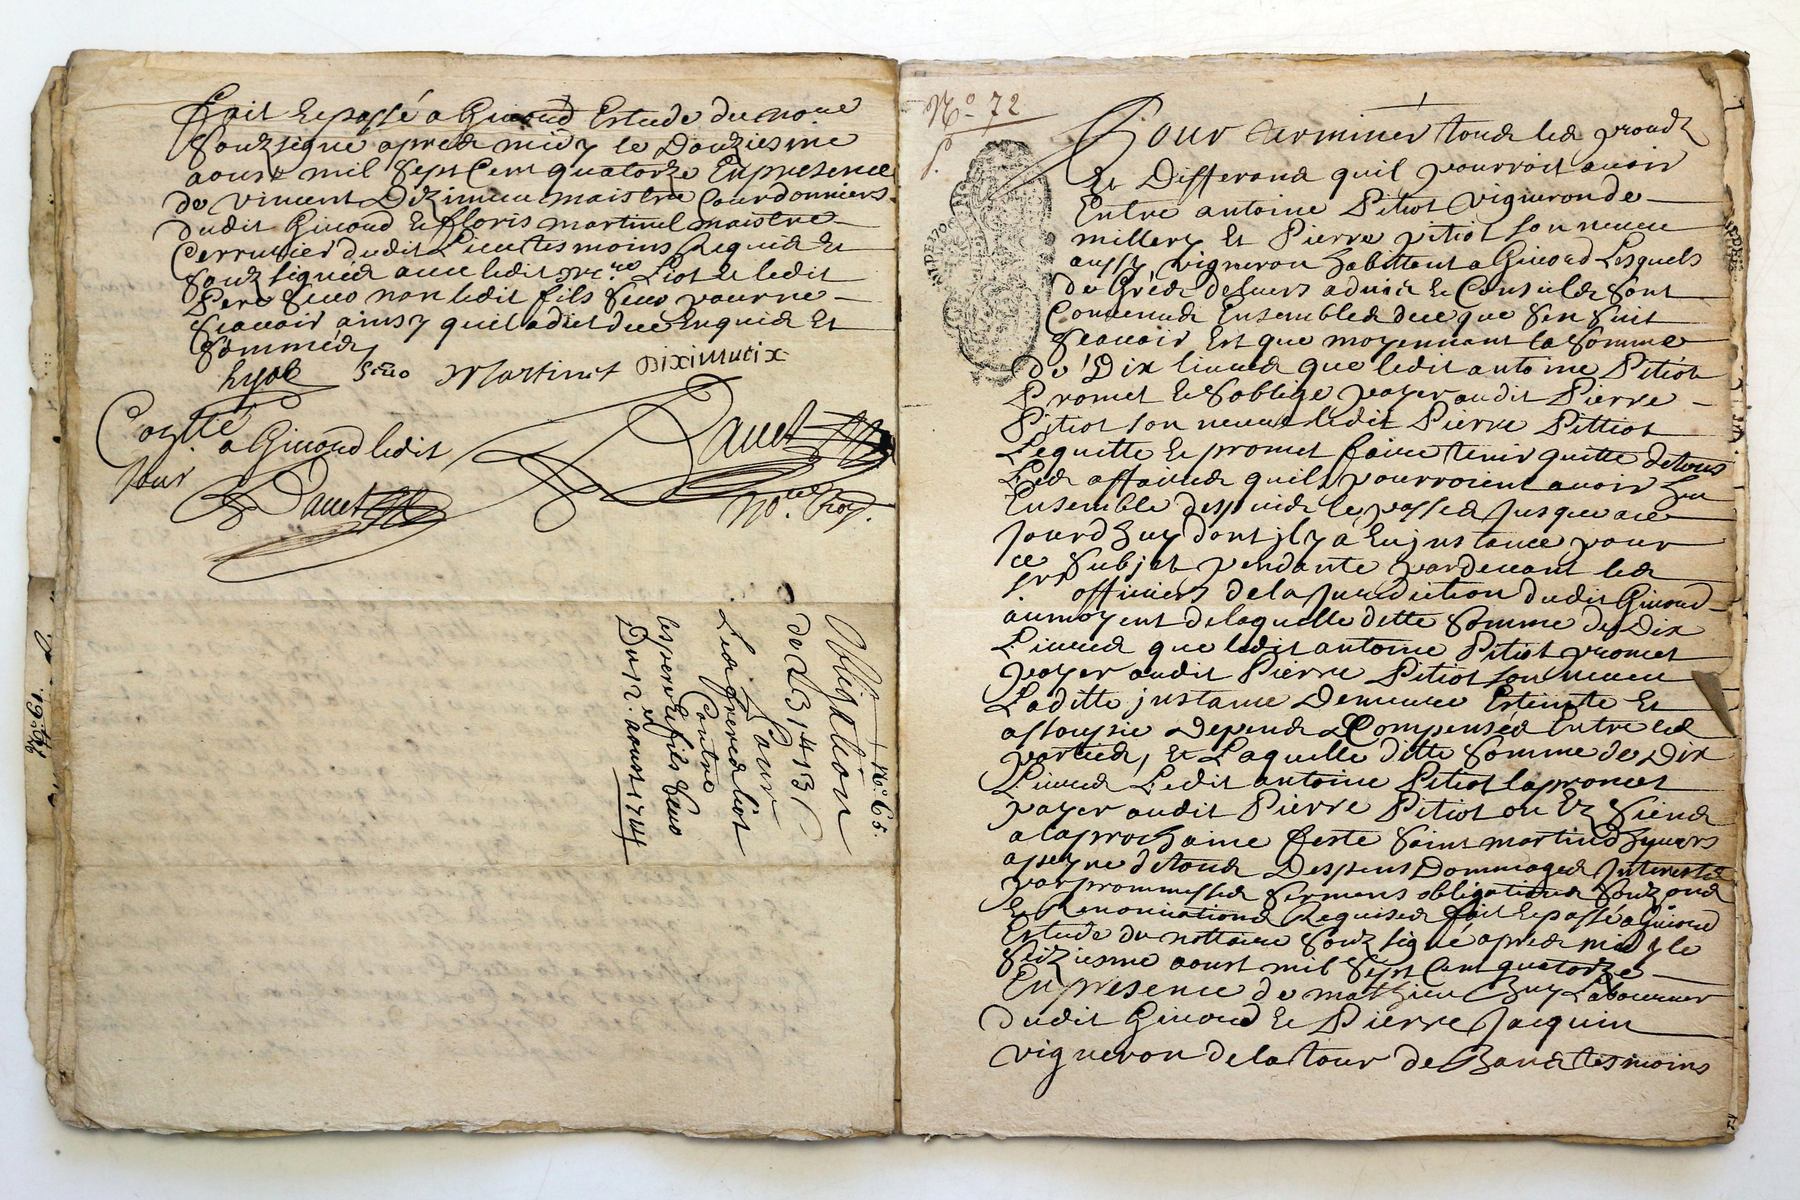 fait Et passé a Givord Estude du no.re
souzsigné apres midy le Douziesme
aoust mil sept Cent quatorze En presence
de vincent Diximieu maistre Courdonniers
dudit Givord Et floris martinet maistre
Cerrurier dudit Lieu tesmoins Requis Et
souzsignés avec ledit Liot Et ledit
Pere Seuo non ledit fils Seuo pour ne
scavoir ainsy quil a dict de ce Enquis Et
sommés
Seuo Martinet DIXIMIEUX
Coytté
a Givord ledit
jour
Dauet
Dauet
No.re Roy.
N.o 65.
Obligation
de L 314 13
Pour
Les freres Liot
Contre
les pere et fils Seuo
Du 12. aoust 1714
N.o 72
Pour terminer tous les proces
Et Differans quil pourroit avoir
Entre antoine Pitiot vigneron de
millery Et Pierre pitiot son neveu
aussy vigneron habittant a Givord Lesquels
de Grés de leurs advis Et Conseils sont
Convenus Ensembles de ce que sen suit
scavoir Est que moyennant la somme
de Dix livres que ledit antoine Pitiot
Promet Et soblige payer audit Pierre
Pitiot son neveu ledit Pierre Pittiot
Le quitte Et promet faire tenir quitte de tous
Les affaires quils pourroient avoir hu
Ensemble despuis le passés jusques a ce
jourdhuy dont jl y a Eu jnstance pour
ce subjet pendante pardevant les
srs officiers de la jurisdiction dudit Givord
au moyent de laquelle ditte somme de Dix
Livres que ledit antoine Pitiot promet
payer audit Pierre Pitiot son neveu
Laditte jnstance Demeure Esteinte Et
assoupie depens Compensés Entre les
parties, Et Laquelle ditte somme de Dix
Livres Ledit antoine Pitiot la promet
payer audit Pierre Pitiot ou Ez siens
a la prochaine feste saint martin dhyvers
a peyne de tous Despens Dommages Interests
par prommesses sermens obligations
Et Renonciations Requises fait Et passé a Givord
Estude du nottaire souzsigné apres midy le
seiziesme aoust mil sept Cent quatorze
En presence de mathieu Guy Laboureur
dudit Givord Et Pierre Jacquin
vigneron de la tour de tesmoins